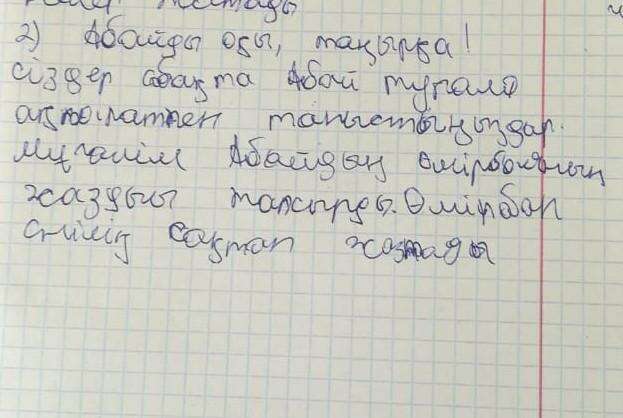 2) Абайды оқы, таңырқа!
сіздер сабақта Абай туралы
ақпаратпен таныстыңыздар.
Мұғалім Абайдың өмірбаянын
жаздыны тапсырды. Өмірбаян
стилін сақтап жазады